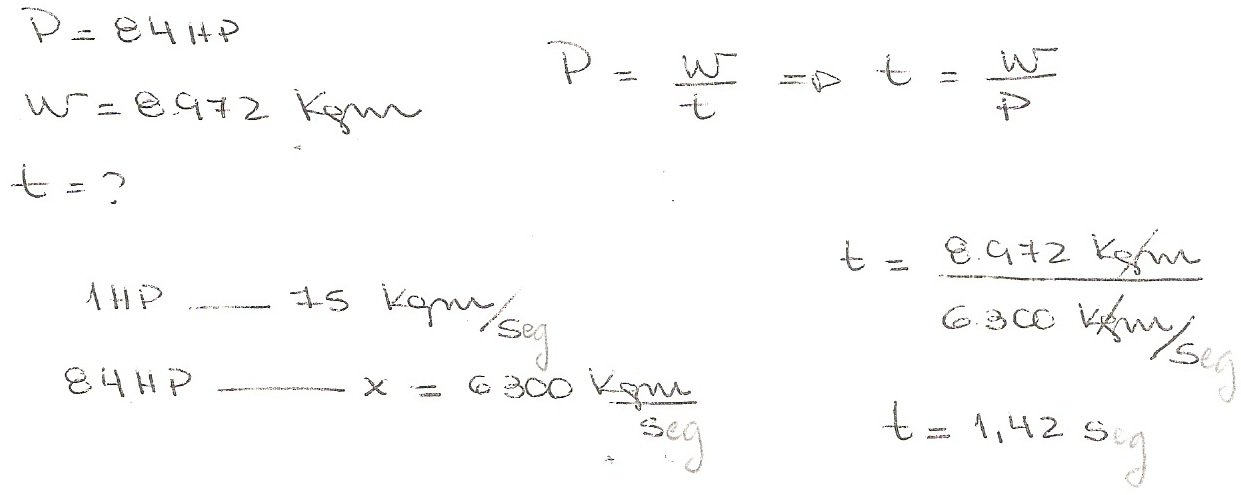 P = 84 HP
W = 8.972 Kgm
t = ?
P = W/t => t = W/P
1 HP — 75 Kgm/seg
84 HP — x = 6300 Kgm/seg
t = 8.972 Kgm / 6.300 Kgm/seg
t = 1,42 seg